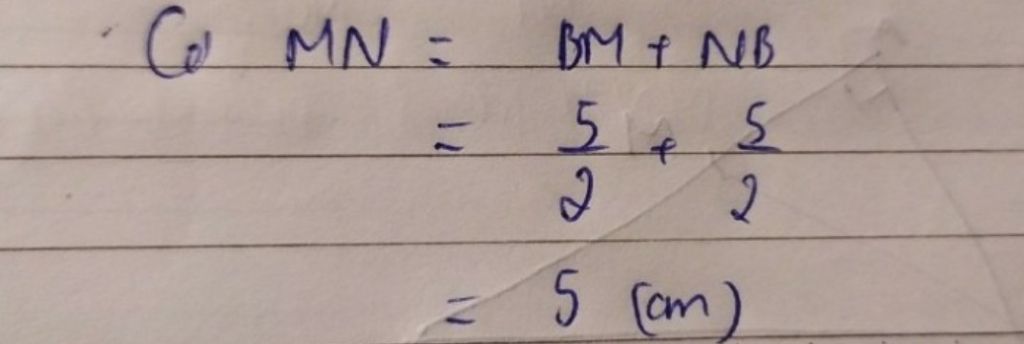 Có MN = BM + NB
= 5/2 + 5/2
= 5 (cm)